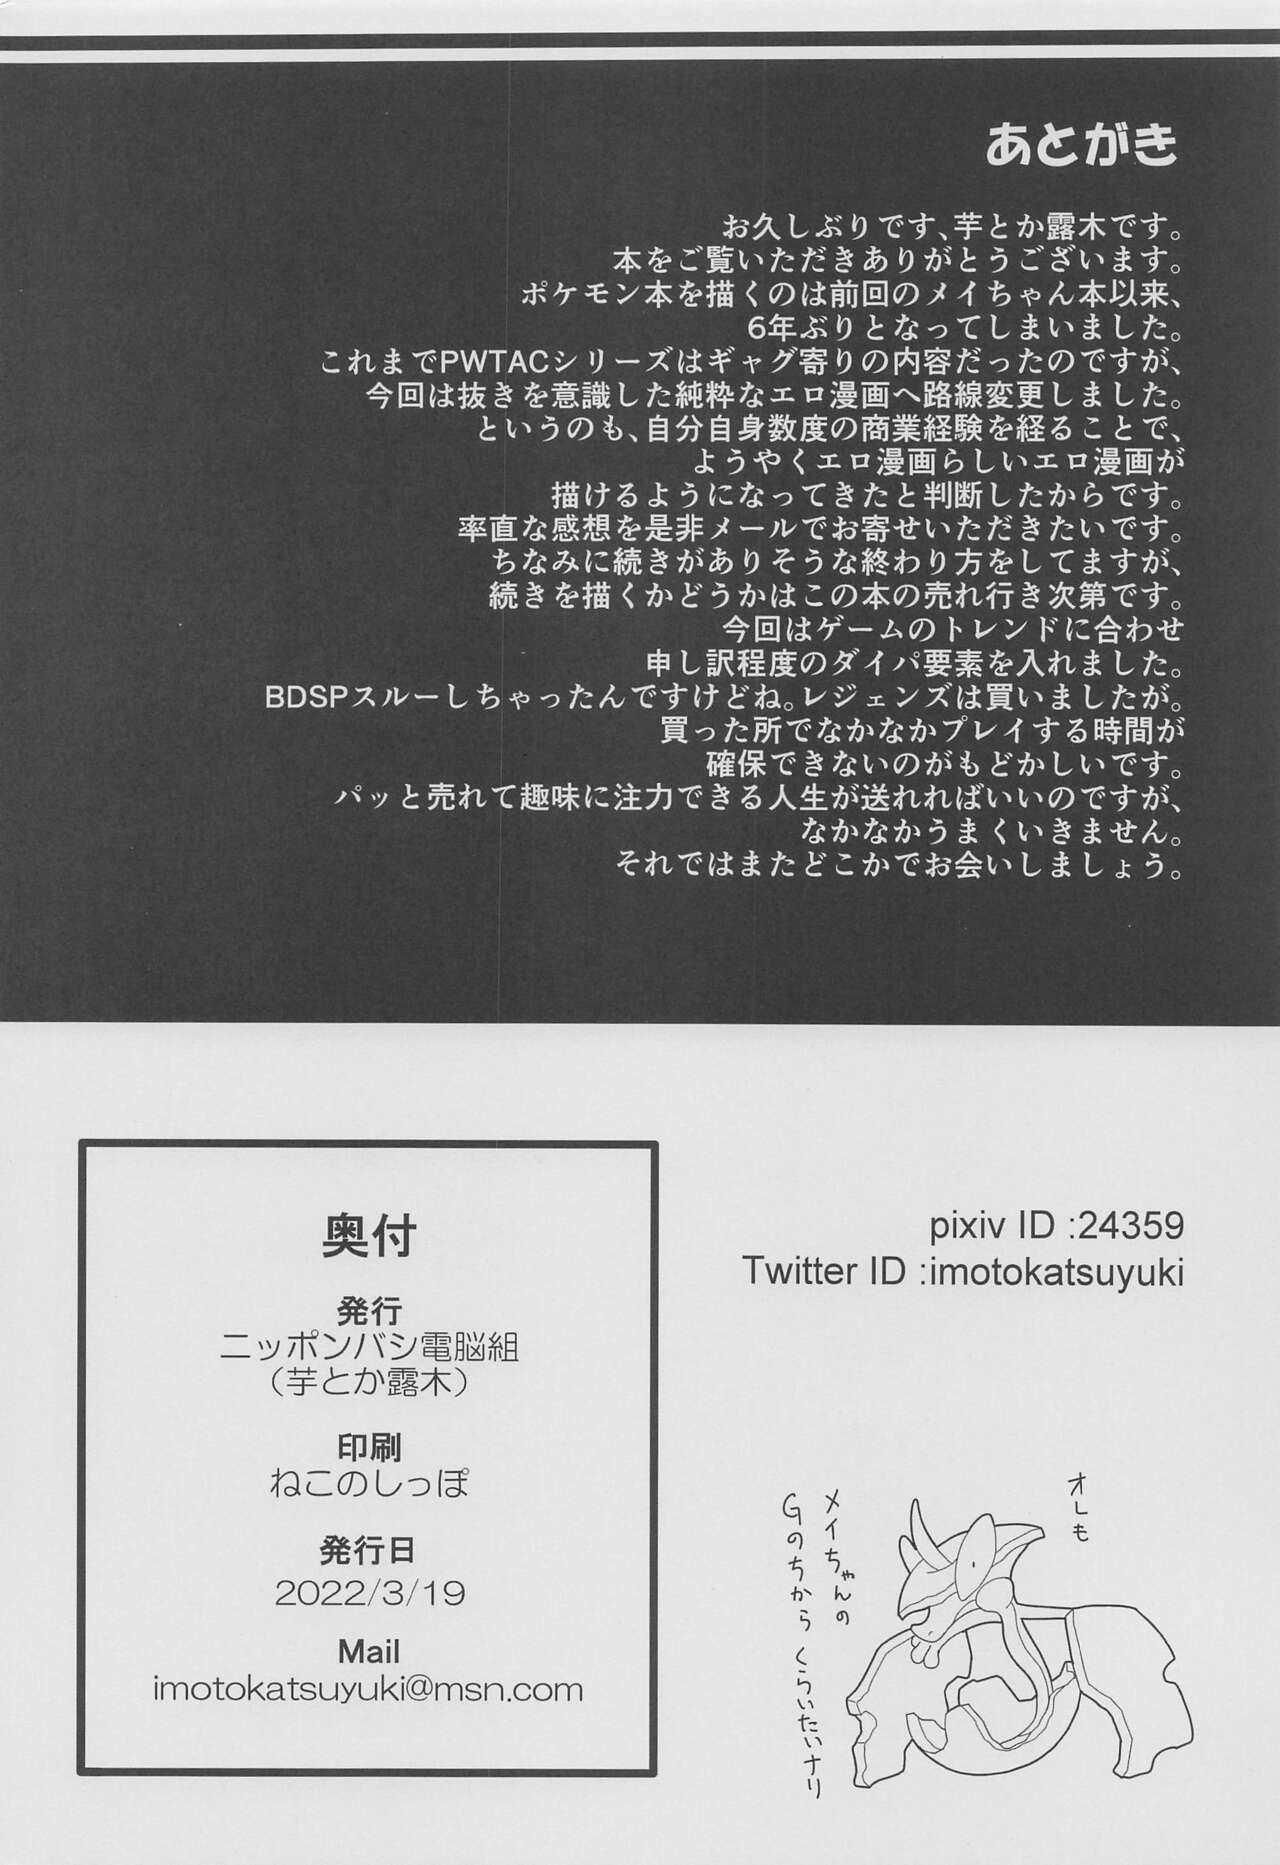 あとがき
お久しぶりです、芋とか露木です。
本をご覧いただきありがとうございます。
ポケモン本を描くのは前回のメイちゃん本以来、
6年ぶりとなってしまいました。
これまでPWTACシリーズはギャグ寄りの内容だったのですが、
今回は抜きを意識した純粋なエロ漫画へ路線変更しました。
というのも、自分自身数度の商業経験を経ることで、
ようやくエロ漫画らしいエロ漫画が
描けるようになってきたと判断したからです。
率直な感想を是非メールでお寄せいただきたいです。
ちなみに続きがありそうな終わり方をしてますが、
続きを描くかどうかはこの本の売れ行き次第です。
今回はゲームのトレンドに合わせ
申し訳程度のダイパ要素を入れました。
BDSPスルーしちゃったんですけどね。レジェンズは買いましたが。
買った所でなかなかプレイする時間が
確保できないのがもどかしいです。
パッと売れて趣味に注力できる人生が送れればいいのですが、
なかなかうまくいきません。
それではまたどこかでお会いしましょう。
奥付
発行
ニッポンバシ電脳組
（芋とか露木）
印刷
ねこのしっぽ
発行日
2022/3/19
Mail
imotokatsuyuki@msn.com
pixiv ID :24359
Twitter ID :imotokatsuyuki
オレも
メイちゃんの
Gのちから くらいたいナリ